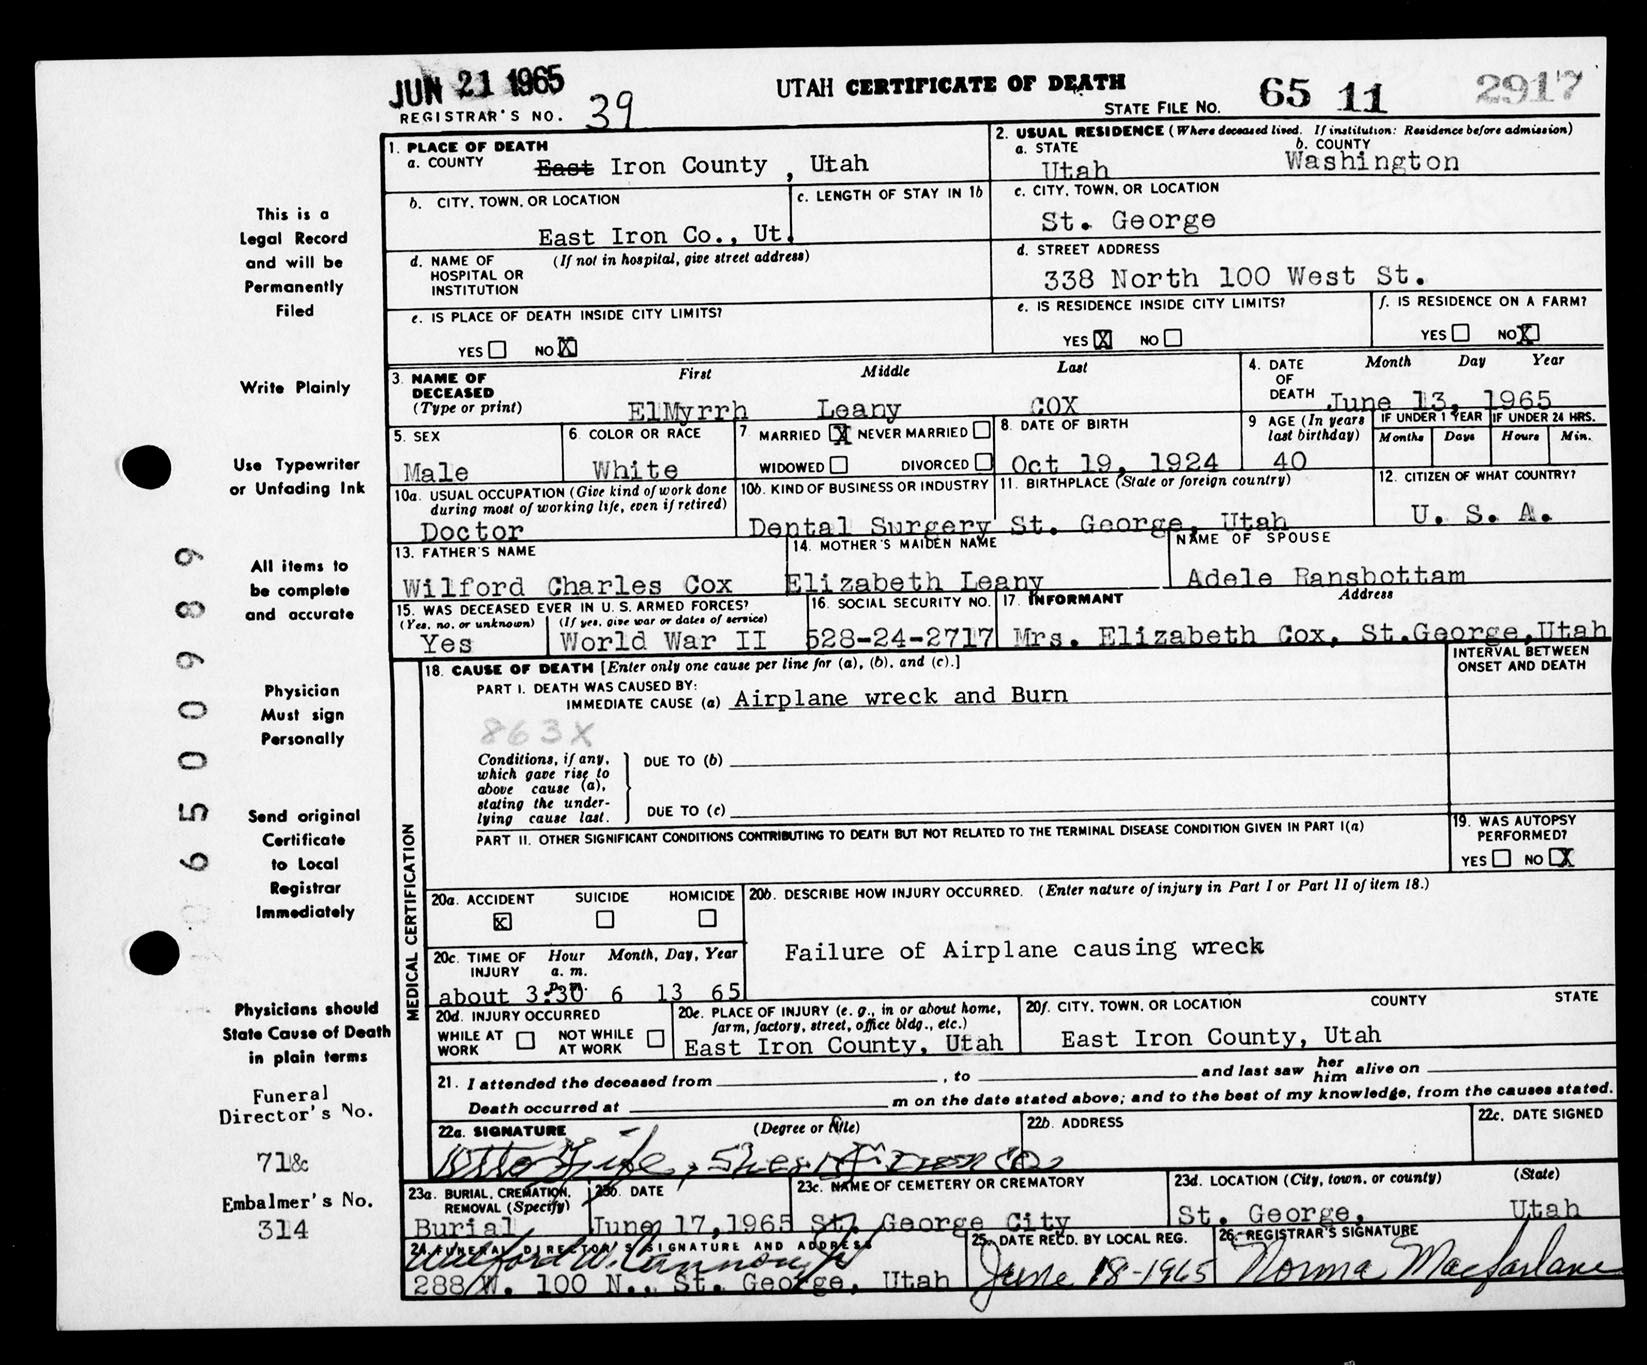 JUN 21 1965
UTAH CERTIFICATE OF DEATH
REGISTRAR'S NO. 39
STATE FILE NO. 65 11 2917
1. PLACE OF DEATH
a. COUNTY East Iron County , Utah
2. USUAL RESIDENCE (Where deceased lived. If institution: Residence before admission)
a. STATE Utah
b. COUNTY Washington
b. CITY, TOWN, OR LOCATION
East Iron Co., Ut.
c. LENGTH OF STAY IN 1b
c. CITY, TOWN, OR LOCATION
St. George
d. NAME OF HOSPITAL OR INSTITUTION (If not in hospital, give street address)
d. STREET ADDRESS
338 North 100 West St.
e. IS PLACE OF DEATH INSIDE CITY LIMITS?
YES NO X
e. IS RESIDENCE INSIDE CITY LIMITS?
YES X NO
f. IS RESIDENCE ON A FARM?
YES NO X
3. NAME OF DECEASED (Type or print)
First Middle Last
ElMyrrh Leany COX
4. DATE OF DEATH Month Day Year
June 13, 1965
5. SEX
Male
6. COLOR OR RACE
White
7. MARRIED X NEVER MARRIED
WIDOWED DIVORCED
8. DATE OF BIRTH
Oct 19, 1924
9 AGE (In years last birthday)
40
IF UNDER 1 YEAR
Months Days
IF UNDER 24 HRS.
Hours Min.
10a. USUAL OCCUPATION (Give kind of work done during most of working life, even if retired)
Doctor
10b. KIND OF BUSINESS OR INDUSTRY
Dental Surgery
11. BIRTHPLACE (State or foreign country)
St. George, Utah
12. CITIZEN OF WHAT COUNTRY?
U. S. A.
13. FATHER'S NAME
Wilford Charles Cox
14. MOTHER'S MAIDEN NAME
Elizabeth Leany
NAME OF SPOUSE
Adele Ransbottam
15. WAS DECEASED EVER IN U. S. ARMED FORCES?
(Yes, no, or unknown) (If yes, give war or dates of service)
Yes World War II
16. SOCIAL SECURITY NO.
528-24-2717
17. INFORMANT Address
Mrs. Elizabeth Cox, St.George,Utah
MEDICAL CERTIFICATION
18. CAUSE OF DEATH [Enter only one cause per line for (a), (b), and (c).]
INTERVAL BETWEEN ONSET AND DEATH
PART I. DEATH WAS CAUSED BY:
IMMEDIATE CAUSE (a) Airplane wreck and Burn
863X
Conditions, if any, which gave rise to above cause (a), stating the underlying cause last.
DUE TO (b)
DUE TO (c)
PART II. OTHER SIGNIFICANT CONDITIONS CONTRIBUTING TO DEATH BUT NOT RELATED TO THE TERMINAL DISEASE CONDITION GIVEN IN PART I(a)
19. WAS AUTOPSY PERFORMED?
YES NO X
20a. ACCIDENT SUICIDE HOMICIDE
X
20b. DESCRIBE HOW INJURY OCCURRED. (Enter nature of injury in Part I or Part II of item 18.)
Failure of Airplane causing wreck
20c. TIME OF INJURY Hour Month, Day, Year
a. m.
p. m.
about 3:30 6 13 65
20d. INJURY OCCURRED
WHILE AT WORK NOT WHILE AT WORK
20e. PLACE OF INJURY (e. g., in or about home, farm, factory, street, office bldg., etc.)
East Iron County, Utah
20f. CITY, TOWN, OR LOCATION COUNTY STATE
East Iron County, Utah
21. I attended the deceased from , to and last saw her him alive on
Death occurred at m on the date stated above; and to the best of my knowledge, from the causes stated.
22a. SIGNATURE (Degree or title)
Otto Fife, Sheriff Iron Co.
22b. ADDRESS
22c. DATE SIGNED
23a. BURIAL, CREMATION, REMOVAL (Specify)
Burial
23b. DATE
June 17,1965
23c. NAME OF CEMETERY OR CREMATORY
St. George City
23d. LOCATION (City, town, or county) (State)
St. George, Utah
24. FUNERAL DIRECTOR'S SIGNATURE AND ADDRESS
288 W. 100 N., St. George, Utah
25. DATE RECD. BY LOCAL REG.
June 18-1965
26. REGISTRAR'S SIGNATURE
Norma Macfarlane
This is a
Legal Record
and will be
Permanently
Filed
Write Plainly
Use Typewriter
or Unfading Ink
All items to
be complete
and accurate
Physician
Must sign
Personally
Send original
Certificate
to Local
Registrar
Immediately
Physicians should
State Cause of Death
in plain terms
Funeral
Director's No.
718c
Embalmer's No.
314
65009899